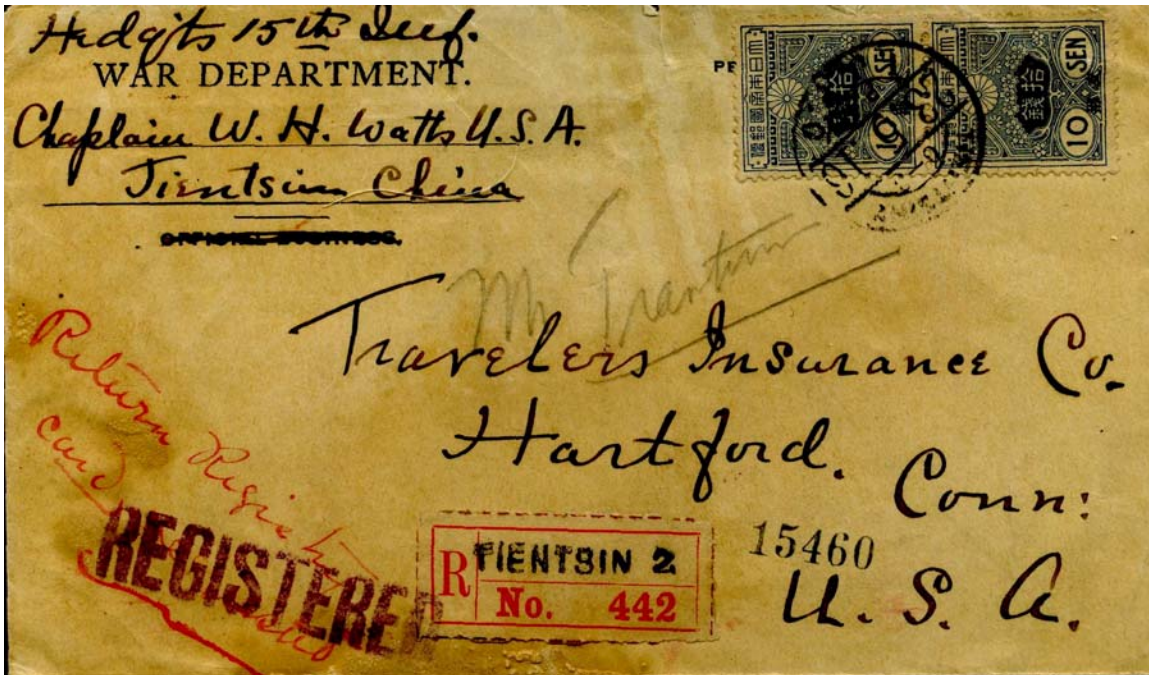 Hedqts 15th Inf.
WAR DEPARTMENT.
Chaplain W. H. Watts U.S.A.
Tientsin China
OFFICIAL BUSINESS.
PE
大日本帝國郵便
拾錢
10 SEN
拾錢
10 SEN
Mr. Trantum
Travelers Insurance Co.
Hartford.
Conn:
U. S. A.
15460
Return Registry
card
REGISTERED
R TIENTSIN 2
No. 442